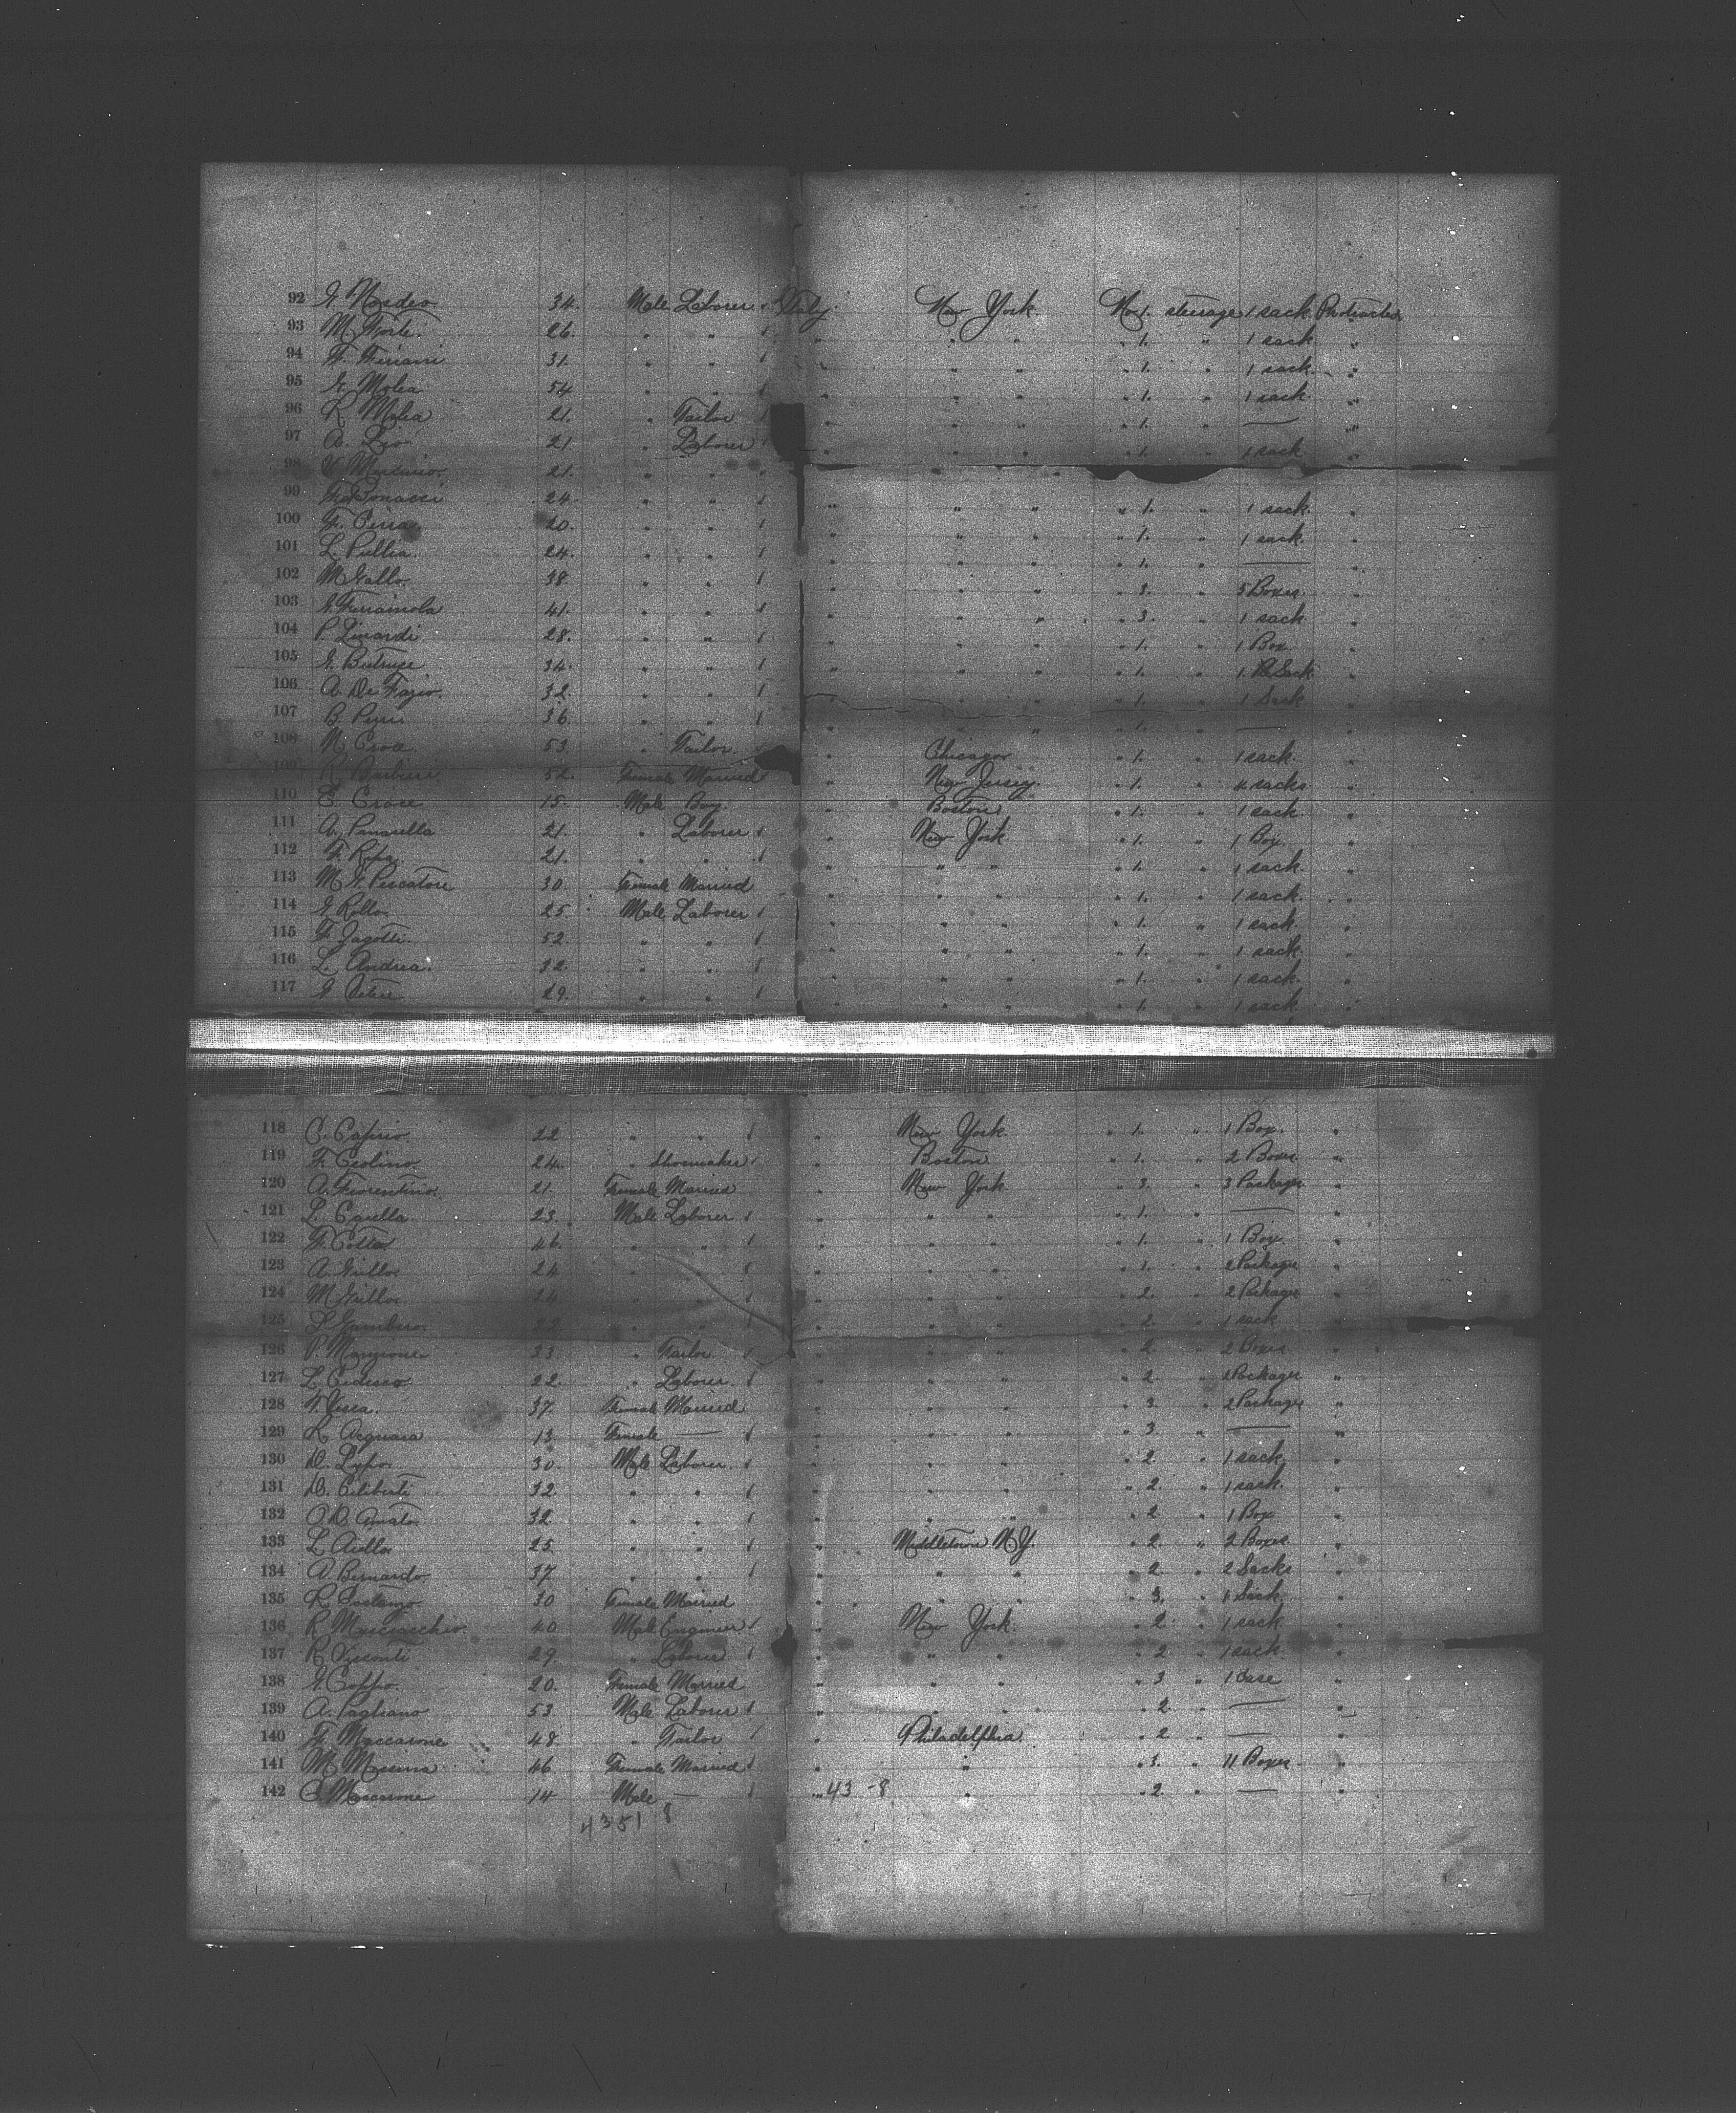 92 34. Male Laborer Italy New York. No 1. steerage 1 sack Protracted
93 M. Forte. 26. " " " " " " 1. " 1 sack "
94 31. " " " " " " 1. " 1 sack "
95 G. Molea 54 " " " " " " 1. " 1 sack "
96 R. Molea 21. " Tailor " " " " 1. " — "
97 A. Leo 21 " Laborer " " " " 1. " 1 sack
98 21. " "
99 Bonacci 24. " " " " " " 1. " 1 sack "
100 F. Perra. 20. " " " " " " 1. " 1 sack. "
101 L. Pullia. 24. " " " " " " 1. " — "
102 M. Gallo. 38. " " " " " " 3. " 5 Boxes. "
103 41. " " " " " " 3. " 1 sack "
104 P. Linardi 28. " " " " " " 1. " 1 Box "
105 34. " " " " " " 1. " 1. Sack "
106 A. De Fazio. 32. " " " " " " 1. " 1 Sack "
107 B. Perri 36. " " " " " " 1. " — "
108 N. Croce. 53. " Tailor. " Chicago " 1. " 1 sack. "
109 R. Barbieri 52. Female Married " New Jersey. " 1. " 4 sacks "
110 E. Croce 15. Male Boy. " Boston " 1. " 1 sack. "
111 A. Panarella 21. " Laborer " New York " 1. " 1 Box. "
112 F. Repa. 21. " " " " " " 1. " 1 sack. "
113 M. G. Pescatore 30 Female Married " " " " 1. " 1 sack. "
114 G. Rollo. 25. Male Laborer " " " " 1. " 1 sack "
115 F. Zagotti. 52. " " " " " " 1. " 1 sack "
116 L. Andrea. 32. " " " " " " 1. " 1 sack "
117 29. " " " " " " 1. " 1 sack "
118 C. Caprio. 22 " " New York " 1. " 1 Box. "
119 F. Ceolino. 24. " Shoemaker " Boston " 1. " 2 Boxes "
120 A. Fiorentino. 21. Female Married " New York " 3. " 3 Packages "
121 L. Carella 23 Male Laborer " " " " 1. " — "
122 F. Cotta 46. " " " " " " 1. " 1 Box. "
123 A. Grillo. 24 " " " " " " 1. " 2 Packages "
124 M. Grillo. 24 " " " " " " 2. " 2 Packages "
125 L. Gambero. 22 " " " " " " 2. " 1 sack "
126 P. Mangione 23 " Tailor. " " " " 2 " 2 Boxes "
127 L. Cedesco. 22. " Laborer. " " " " 2. " 2 Packages "
128 37. Female Married " " " " 3 " 2 Packages "
129 13. Female — " " " " 3 " — "
130 D. Lypo. 30. Male Laborer. " " " " 2. " 1 sack "
131 D. Ciliberti 32. " " " " " " 2. " 1 sack. "
132 O. D. Amato. 32. " " " " " " 2 " 1 Box "
133 L. Aiello 25 " " " Middletown N.Y. " 2. " 2 Boxes. "
134 A. Bernardo. 37. " " " " " " 2. " 2 Sacks "
135 R. Costanzo. 30 Female Married " " " " 3. " 1 Sack "
136 40 Male Engineer " New York. " 2. " 1 sack "
137 R. Visconti 29. " Laborer " " " " 2 " 1 sack. "
138 G. Coppo. 20. Female Married " " " " 3 " 1 Case "
139 A. Pagliano 53. Male Laborer " " " " 2. " — "
140 F. Maccarone 48. " Tailor " Philadelphia. " 2 " — "
141 M. Messina 46 Female Married " " " 3. " 11 Boxes "
142 Maccarone 14 Male — " 43 -8 " " 2. " — "
4351 8